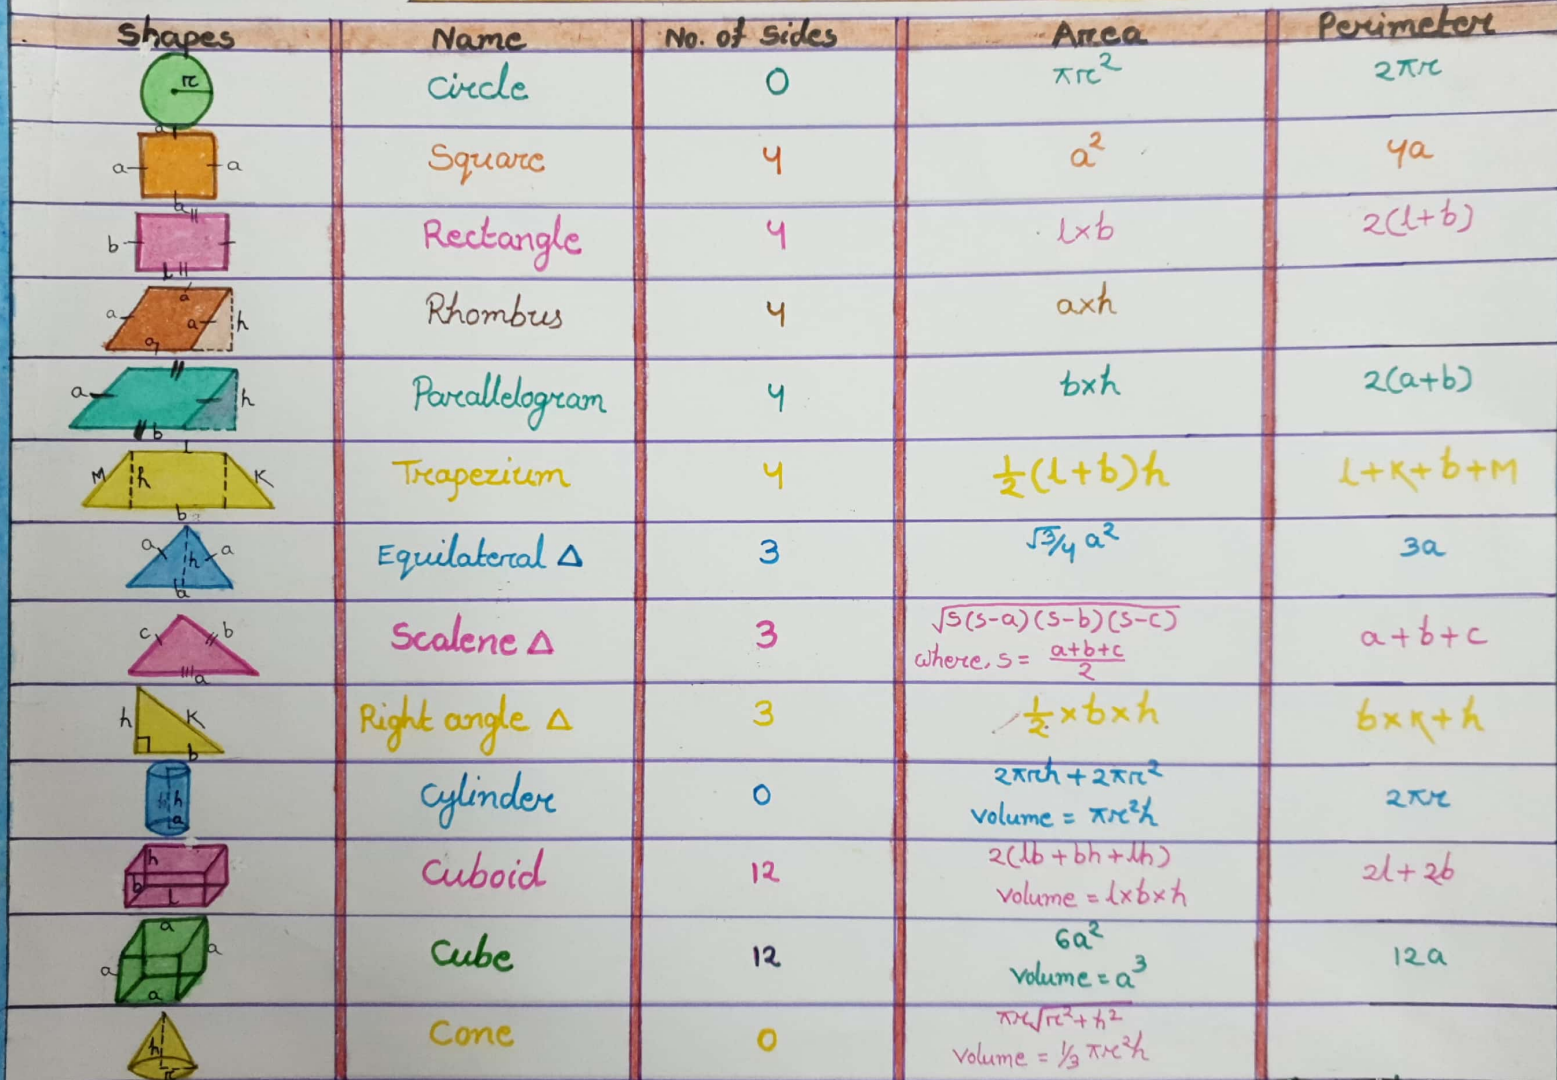 Shapes Name No. of Sides Area Perimeter
r Circle 0 πr² 2πr
a a a a Square 4 a² 4a
b l Rectangle 4 l×b 2(l+b)
a a a a h Rhombus 4 a×h
a h b Parallelogram 4 b×h 2(a+b)
l M h K b Trapezium 4 ½(l+b)h l+K+b+M
a h a a Equilateral Δ 3 √3/4 a² 3a
c b a Scalene Δ 3 √s(s-a)(s-b)(s-c)
where, s = a+b+c/2 a+b+c
h K b Right angle Δ 3 ½×b×h b×K+h
h a Cylinder 0 2πrh + 2πr² 2πr
Volume = πr²h
h b l Cuboid 12 2(lb+bh+lh) 2l+2b
Volume = l×b×h
a a a a Cube 12 6a² 12a
Volume = a³
h r Cone 0 πr√r²+h²
Volume = 1/3 πr²h